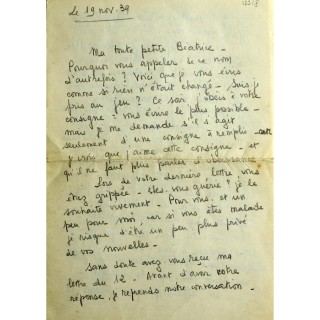 Le 19 nov. 39
Ma toute petite Béatrice -
Pourquoi vous appeler de ce nom
d'autrefois ? Voici que je vous écris
comme si rien n'était changé - Suis-je
pris au jeu ? Ce soir j'obéis à votre
consigne : vous écrire le plus possible -
mais je me demande s'il s'agit
seulement d'une consigne à remplir - 
je crois que j'aime cette consigne - et
qu'il ne faut plus parler d'obéissance -
Lors de votre dernière lettre vous
étiez grippée - êtes-vous guérie ? je le
souhaite vivement - Pour vous, et un
peu pour moi car si vous êtes malade
je risque d'être un peu plus privé
de vos nouvelles -
Sans doute avez-vous reçu ma
lettre du 12 - Avant d'avoir votre
réponse, je reprends notre conversation -